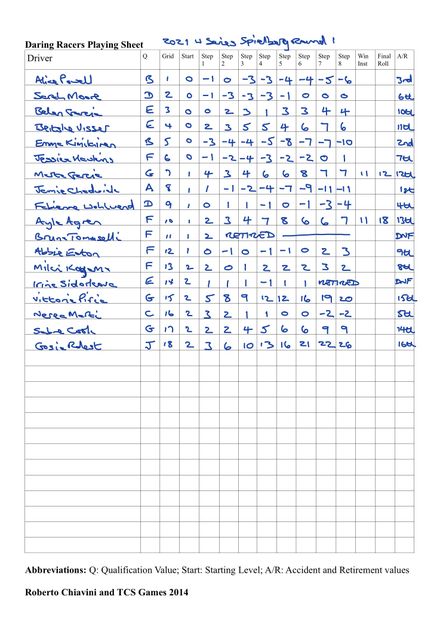 Daring Racers Playing Sheet 2021 W Series Spielberg Round 1
Driver Q Grid Start Step 1 Step 2 Step 3 Step 4 Step 5 Step 6 Step 7 Step 8 Win Inst Final Roll A/R
Alice Powell B 1 0 -1 0 -3 -3 -4 -4 -5 -6 3rd
Sarah Moore D 2 0 -1 -3 -3 -3 -1 0 0 0 6th
Belen Garcia E 3 0 0 2 3 1 3 3 4 4 10th
Beitske Visser E 4 0 2 3 5 5 4 6 7 6 11th
Emma Kimilainen B 5 0 -3 -4 -4 -5 -8 -7 -7 -10 2nd
Jessica Hawkins F 6 0 -1 -2 -4 -3 -2 -2 0 1 7th
Marta Garcia G 7 1 4 3 4 6 6 8 7 7 11 12 12th
Jamie Chadwick A 8 1 1 -1 -2 -4 -7 -9 -11 -11 1st
Fabienne Wohlwend D 9 1 0 1 1 -1 0 -1 -3 -4 4th
Ayla Agren F 10 1 2 3 4 7 8 6 6 7 11 18 13th
Bruna Tomaselli F 11 1 2 RETIRED DNF
Abbie Eaton F 12 1 0 -1 0 -1 -1 0 2 3 9th
Miki Koyama F 13 2 2 0 1 2 2 2 3 2 8th
Irina Sidorkova E 14 2 1 1 1 -1 1 1 RETIRED DNF
Vittoria Piria G 15 2 5 8 9 12 12 16 19 20 15th
Nerea Marti C 16 2 3 2 1 1 0 0 -2 -2 5th
Sabre Cook G 17 2 2 2 4 5 6 6 9 9 14th
Gosia Rdest J 18 2 3 6 10 13 16 21 22 26 16th
Abbreviations: Q: Qualification Value; Start: Starting Level; A/R: Accident and Retirement values
Roberto Chiavini and TCS Games 2014